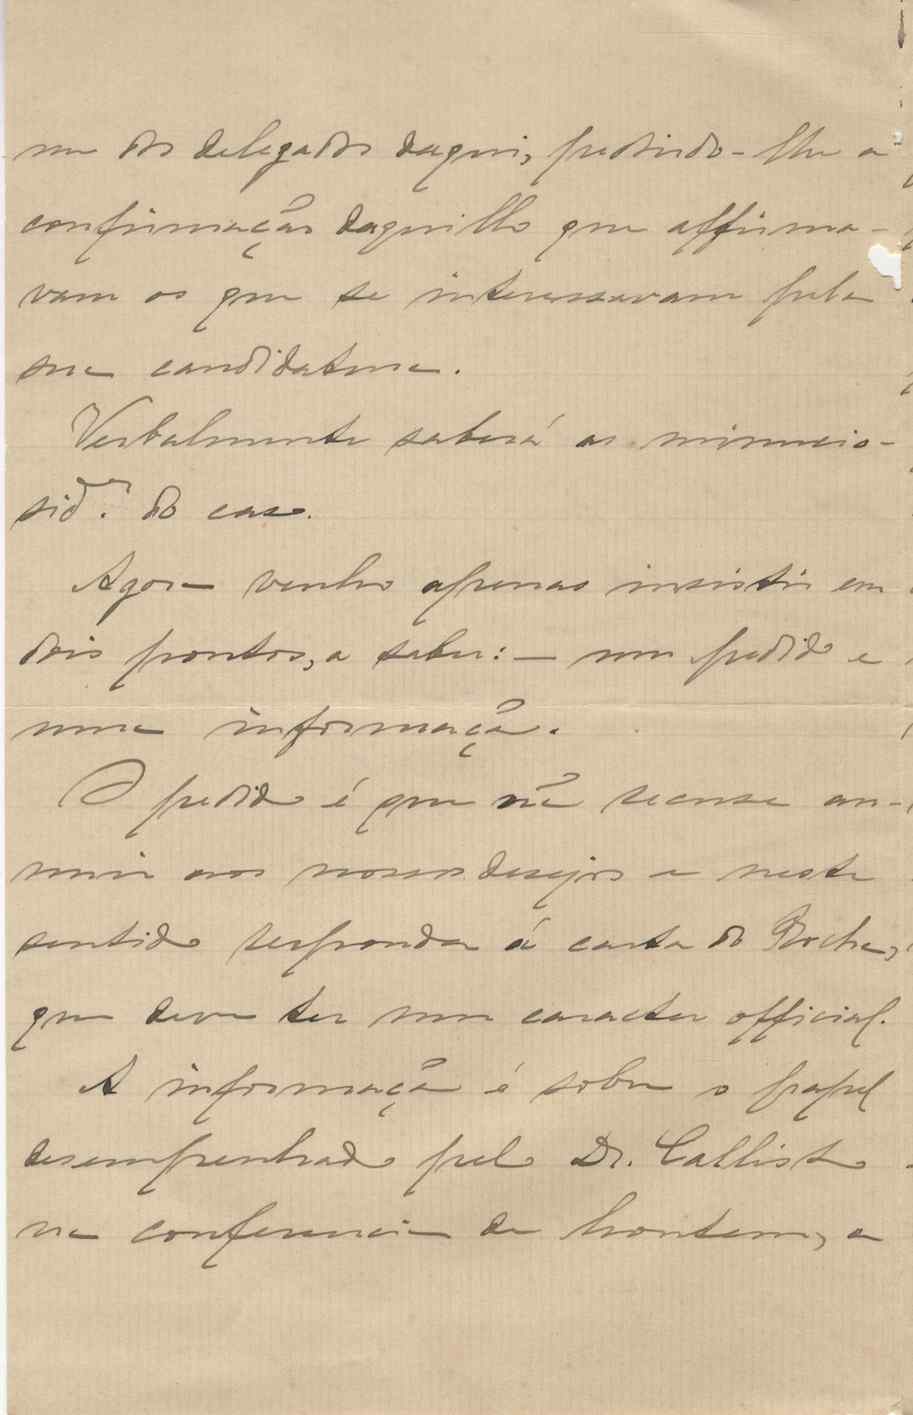 um dos delegados daqui, pedindo-lhe a
confirmação daquillo que affirma-
vam os que se interessavam pela
sua candidatura.
Verbalmente saberá as minucio-
sid.es do caso.
Agora venho apenas insistir em
dois pontos, a saber: — um pedido e
uma informação.
O pedido é que não recuse an-
nuir aos nossos desejos e neste
sentido responda á carta do Rocha,
que deve ter um caracter official.
A informação é sobre o papel
desempenhado pelo Dr. Callisto
na conferencia de hontem, a